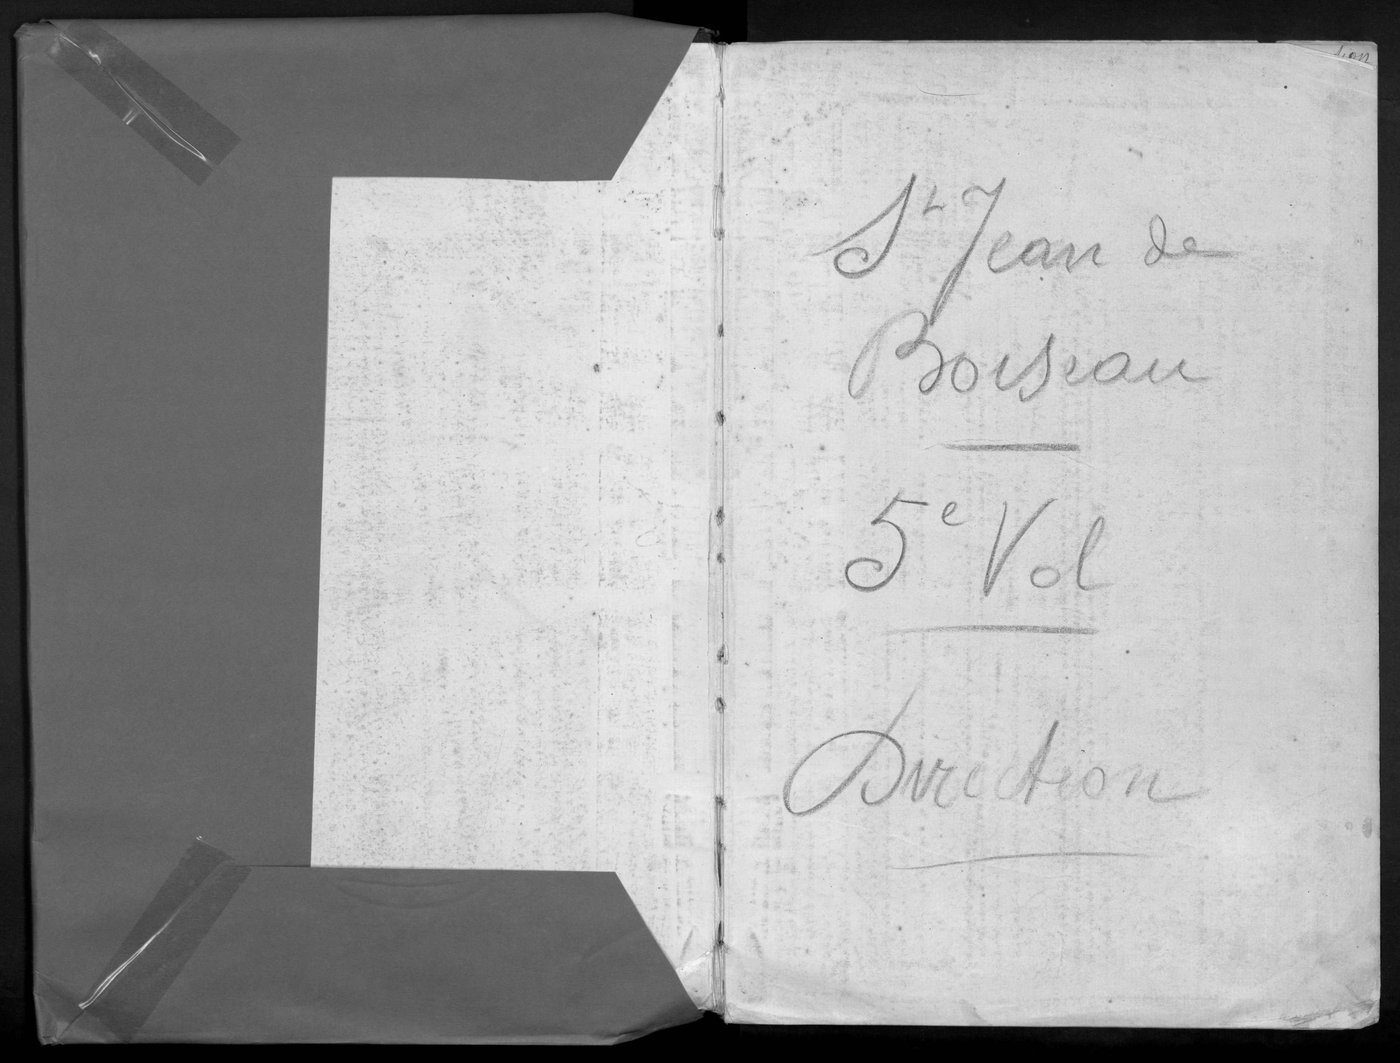 St Jean de
Boiseau
5e Vol
Direction